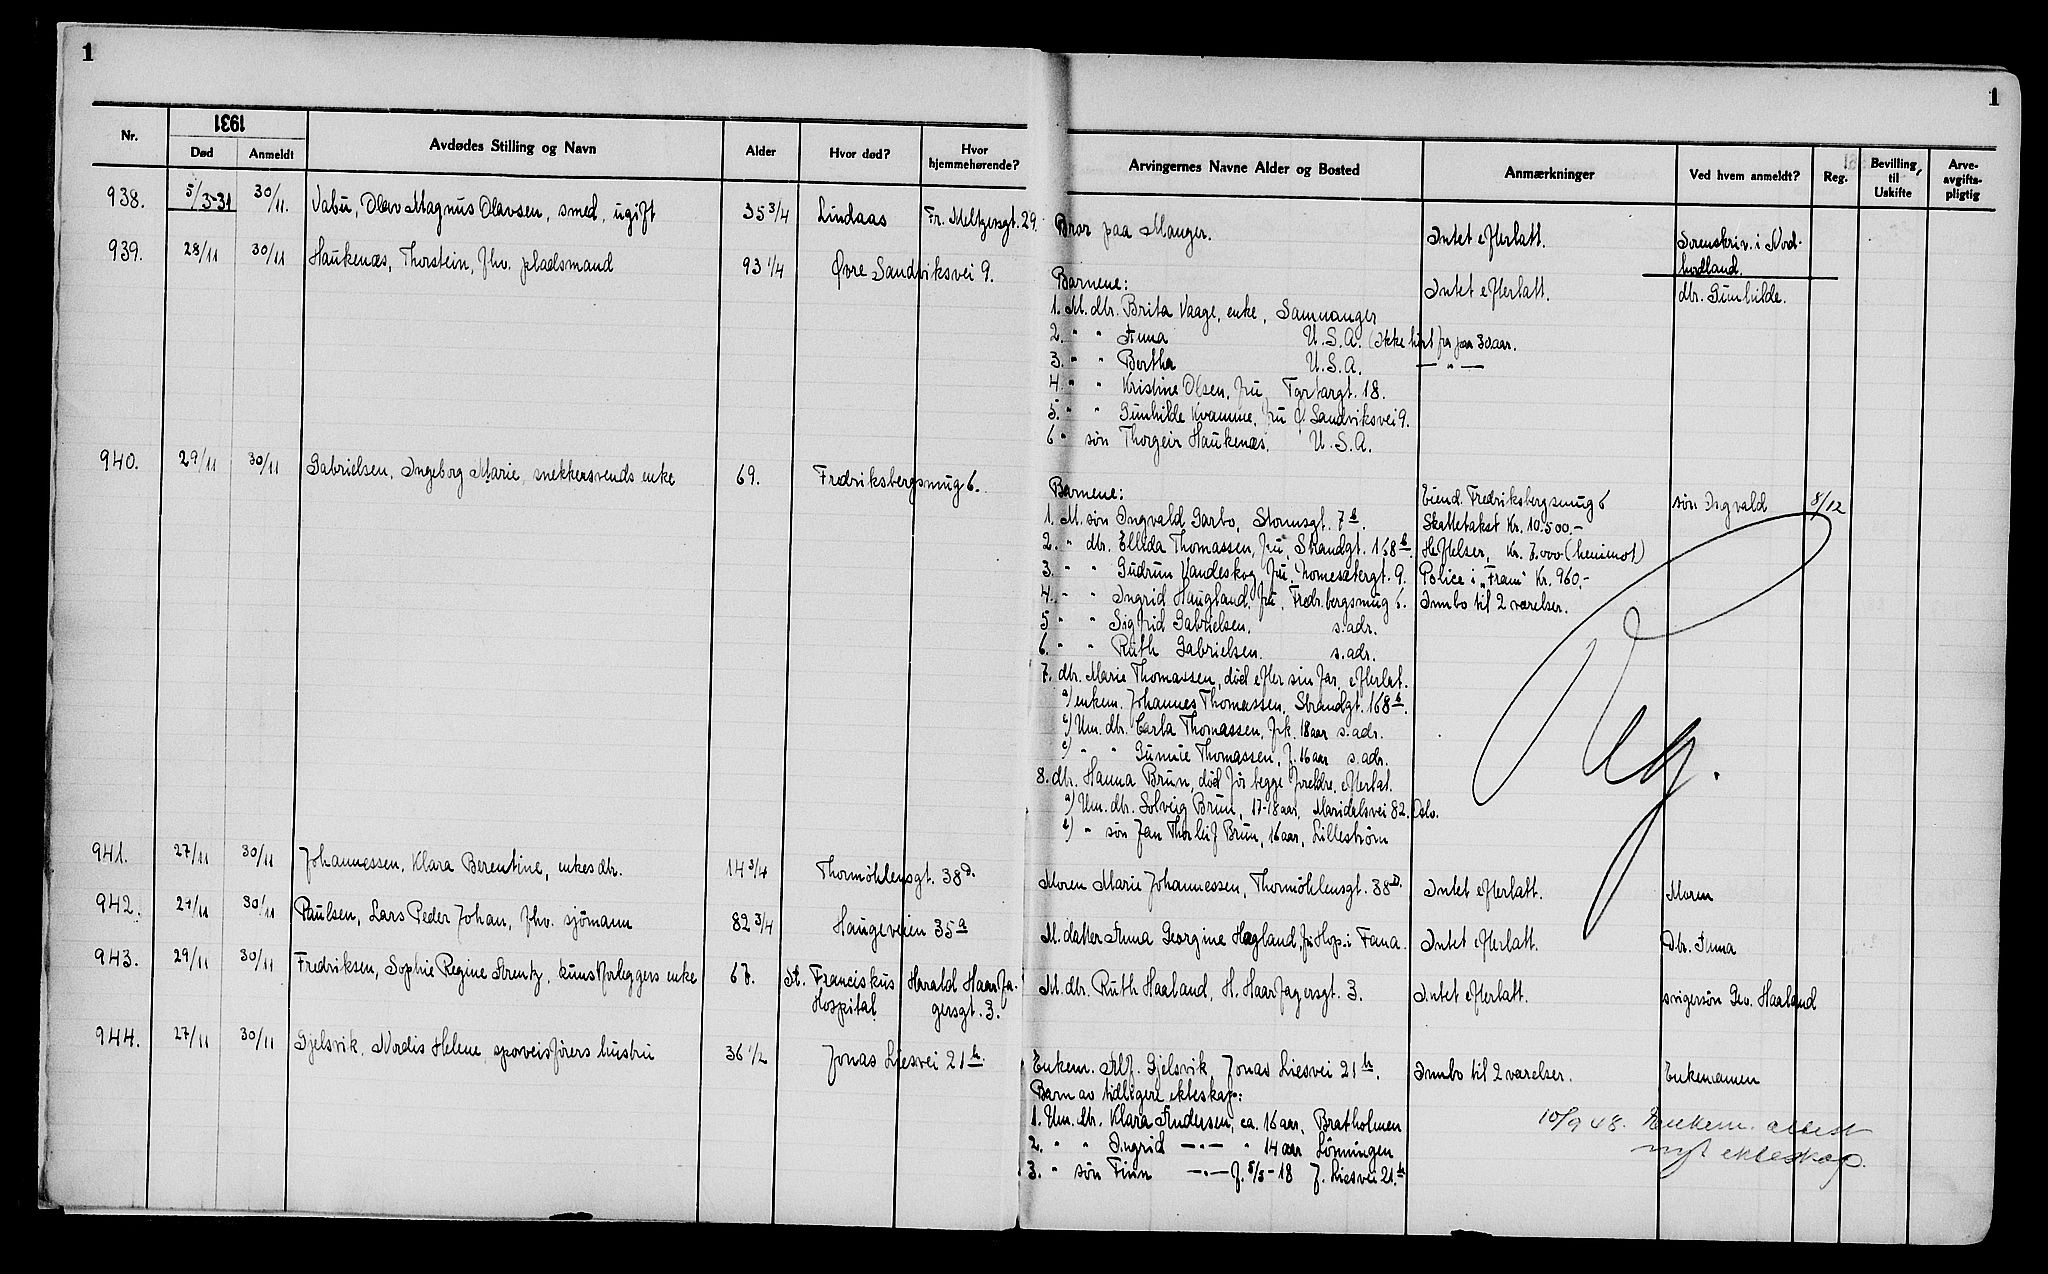 1
1
Nr.
1931
Død
Anmeldt
Avdødes Stilling og Navn
Alder
Hvor død?
Hvor hjemmehørende?
Arvingernes Navne Alder og Bosted
Anmærkninger
Ved hvem anmeldt?
Reg.
Bevilling, til Uskifte
Arve-avgifts-pligtig
938. 5/3-31 30/11. Vabu, Olav Magnus Olavsen, smed, ugift 35 3/4 Lindaas Fr. Meltzersgt. 29.
Bror paa Manger. Intet efterlatt. Sorenskriv. i Nord-
hordland.
939. 28/11 30/11 Haukenæs, Thorstein, fhv. pladsmand 93 1/4 Øvre Sandviksvei 9.
Barnene: Intet efterlatt. dtr. Gunhilde.
1. M. dtr. Brita Vaage, enke, Samnanger
2. " " Anna U.S.A. (Ikke hørt fra paa 30 aar.
3. " " Bertha U.S.A. — " —
4. " " Kristine Olsen, fru Tartargt. 18.
5. " " Gunhilde Kvamme, fru Ø. Sandviksvei 9.
6 " søn Thorgeir Haukenæs. U.S.A.
940. 29/11 30/11 Gabrielsen, Ingeborg Marie, snekkersvends enke 69. Fredriksbergsmug 6.
Barnene: Eiend. Fredriksbergsmug 6 søn Ingvald 8/12
1. M. søn Ingvald Garbo, Stormsgt. 7 b. Skattetakst Kr. 10.500,-
2. " dtr. Elleda Thomassen, fru, Strandgt. 168 b. Heftelser, Kr. 7.000 (henimot)
3. " " Gudrun Vandeskog, fru, 9. Police i "Fram" Kr. 960,-
4. " " Ingrid Haugland, fru, Fredr.bergsmug 6. Innbo til 2 værelser.
5 " " Sigfrid Gabrielsen. s. adr.
6. " " Ruth Gabrielsen. s. adr.
7. dtr. Marie Thomassen, død efter sin far, efterlat.
a) enkem. Johannes Thomassen, Strandgt. 168 b.
Um. dtr. Carla Thomassen, frk. 18 aar s. adr.
c) " " Gunnie Thomassen, f. 16 aar s. adr.
8. dtr. Hanna Brun, død før begge foreldre, efterlat.
a) Um. dtr. Solveig Brun, 17-18 aar, Maridalsvei 82. Oslo.
b) " søn Jan Thorleif Brun, 16 aar, Lillestrøm
Reg.
941. 27/11 30/11 Johannessen, Klara Berentine, enkes dtr. 14 3/4 Thormøhlensgt. 38 D.
Moren Marie Johannessen, Thormøhlensgt. 38 D. Intet efterlatt. Moren
942. 27/11 30/11 Paulsen, Lars Peder Johan, fhv. sjømann 82 3/4 Haugeveien 35 a
M. datter Anna Georgine Hagland, fru Hop. i Fana. Intet efterlatt. Dtr. Anna
943. 29/11 30/11 Fredriksen, Sophie Regine Strentz, kunstforleggers enke 67. St. Franciskus Harald Haarfa-
Hospital. gersgt. 3.
M. dtr. Ruth Haaland, H. Haarfagersgt. 3. Intet efterlatt. svigersøn Geo. Haaland
944. 27/11 30/11 Gjelsvik, Nordis Helene, sporveisførers hustru 36 1/2 Jonas Liesvei 21 b.
Enkem. Alf. Gjelsvik, Jonas Liesvei 21 b. Innbo til 2 værelser. Enkemannen
Barn av tidligere ekteskap:
1. Um. dtr. Klara Andersen, ca. 16 aar, Bratholmen
2. " " Ingrid —"— " 14 aar Lønningen
3. " søn Finn —"— f. 5/5-18 J. Liesvei 21. b
10/9 48. Enkem. attest
nyt ekteskap.